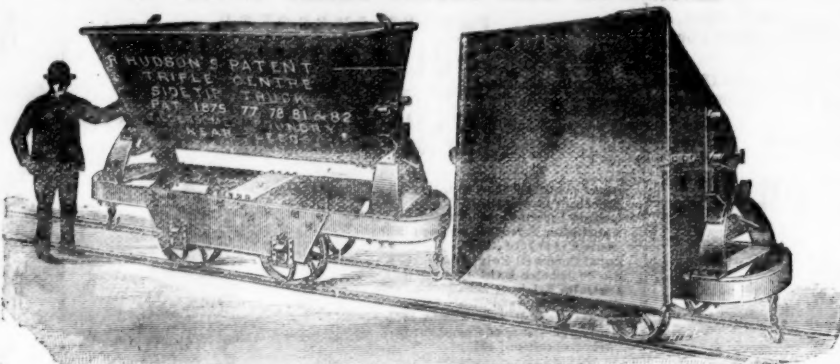 R HUDSON'S PATENT
TRIPLE CENTRE
SIDE TIP TRUCK
PAT. 1875 77 78 81 & 82
NEAR